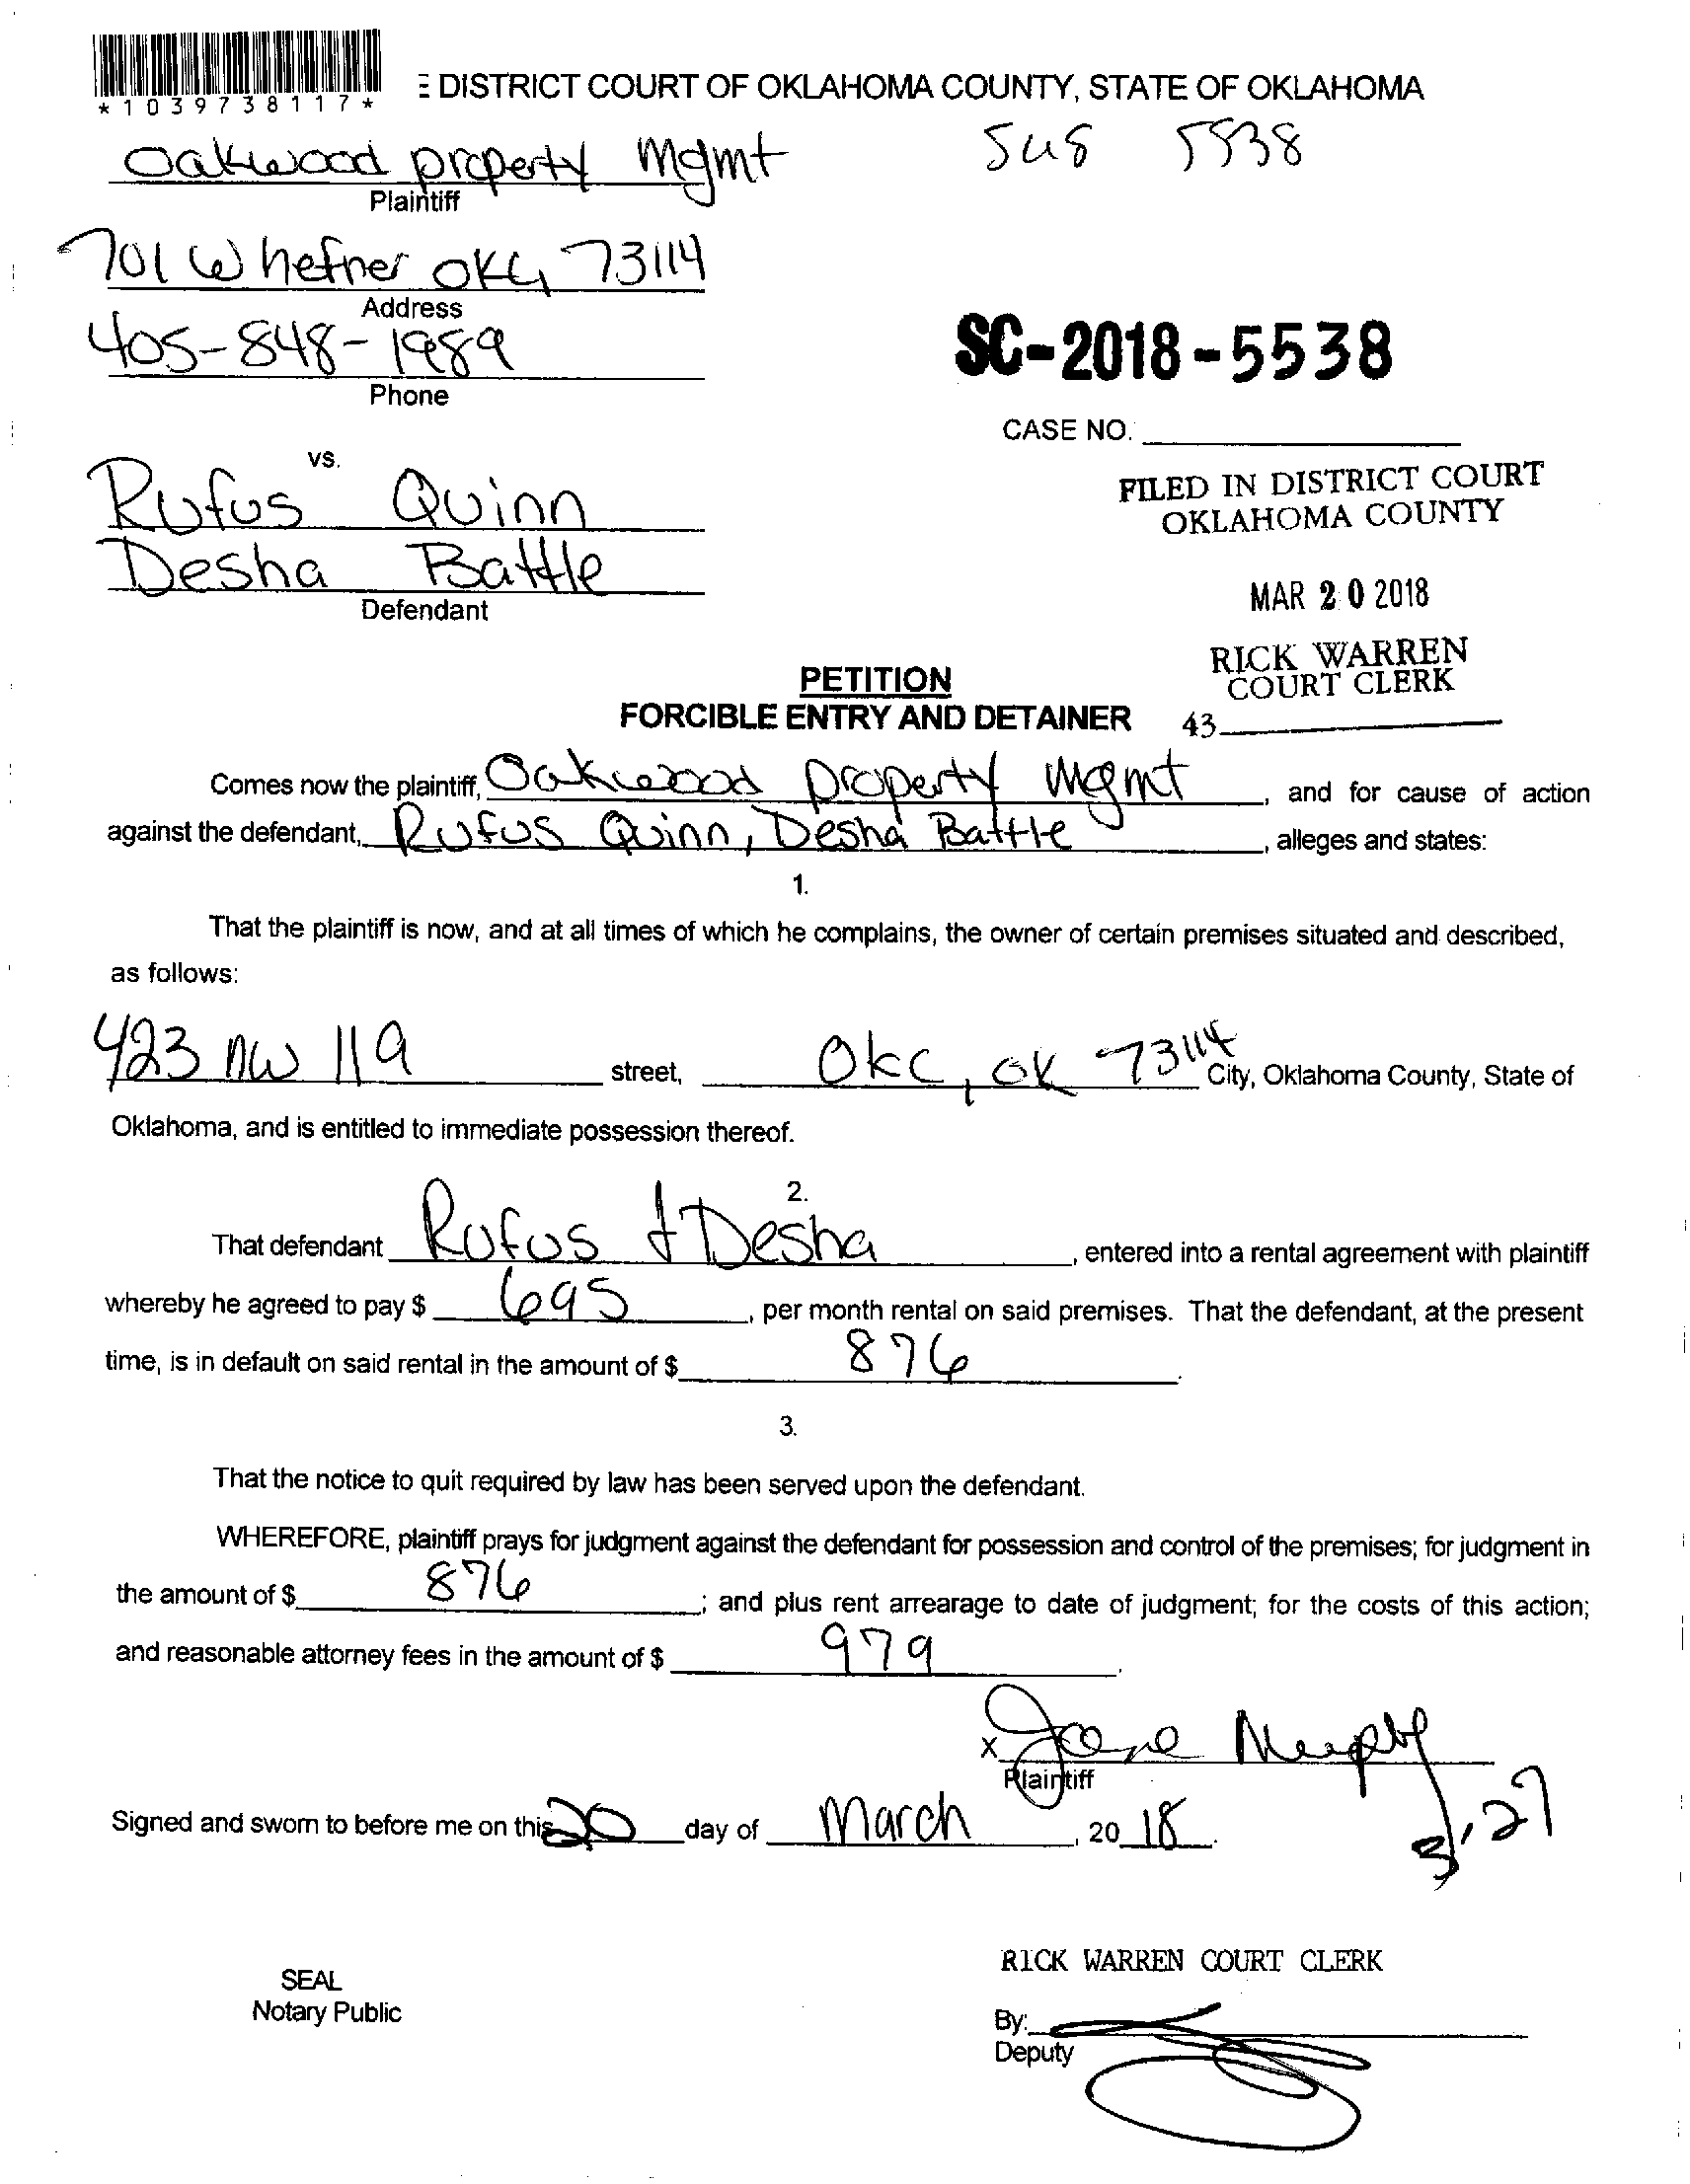 *1039738117*
E DISTRICT COURT OF OKLAHOMA COUNTY, STATE OF OKLAHOMA
Oakwood property Mgmt 5538
Plaintiff
701 W hefner OKC, 73114
Address
405-848-1989
Phone
SC-2018-5538
CASE NO.
vs.
Rufus Quinn
Desha Battle
Defendant
FILED IN DISTRICT COURT
OKLAHOMA COUNTY
MAR 20 2018
RICK WARREN
COURT CLERK
43
PETITION
FORCIBLE ENTRY AND DETAINER
Comes now the plaintiff, Oakwood property Mgmt, and for cause of action
against the defendant, Rufus Quinn, Desha Battle, alleges and states:
1.
That the plaintiff is now, and at all times of which he complains, the owner of certain premises situated and described,
as follows:
423 NW 119 street, OKC, OK 73114 City, Oklahoma County, State of
Oklahoma, and is entitled to immediate possession thereof.
2.
That defendant Rufus & Desha, entered into a rental agreement with plaintiff
whereby he agreed to pay $ 695, per month rental on said premises. That the defendant, at the present
time, is in default on said rental in the amount of $ 876.
3.
That the notice to quit required by law has been served upon the defendant.
WHEREFORE, plaintiff prays for judgment against the defendant for possession and control of the premises; for judgment in
the amount of $ 876; and plus rent arrearage to date of judgment; for the costs of this action;
and reasonable attorney fees in the amount of $ 979.
X Murphy
Plaintiff
Signed and sworn to before me on this 20 day of March, 2018.
3,27
SEAL
Notary Public
RICK WARREN COURT CLERK
By:
Deputy